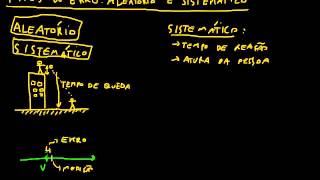 ERRO: ALEATÓRIO E SISTEMÁTICO
ALEATÓRIO
SISTEMÁTICO
TEMPO DE QUEDA
SISTEMÁTICO:
→ TEMPO DE REAÇÃO
→ ALTURA DA PESSOA
ERRO
V
MEDIÇÃO